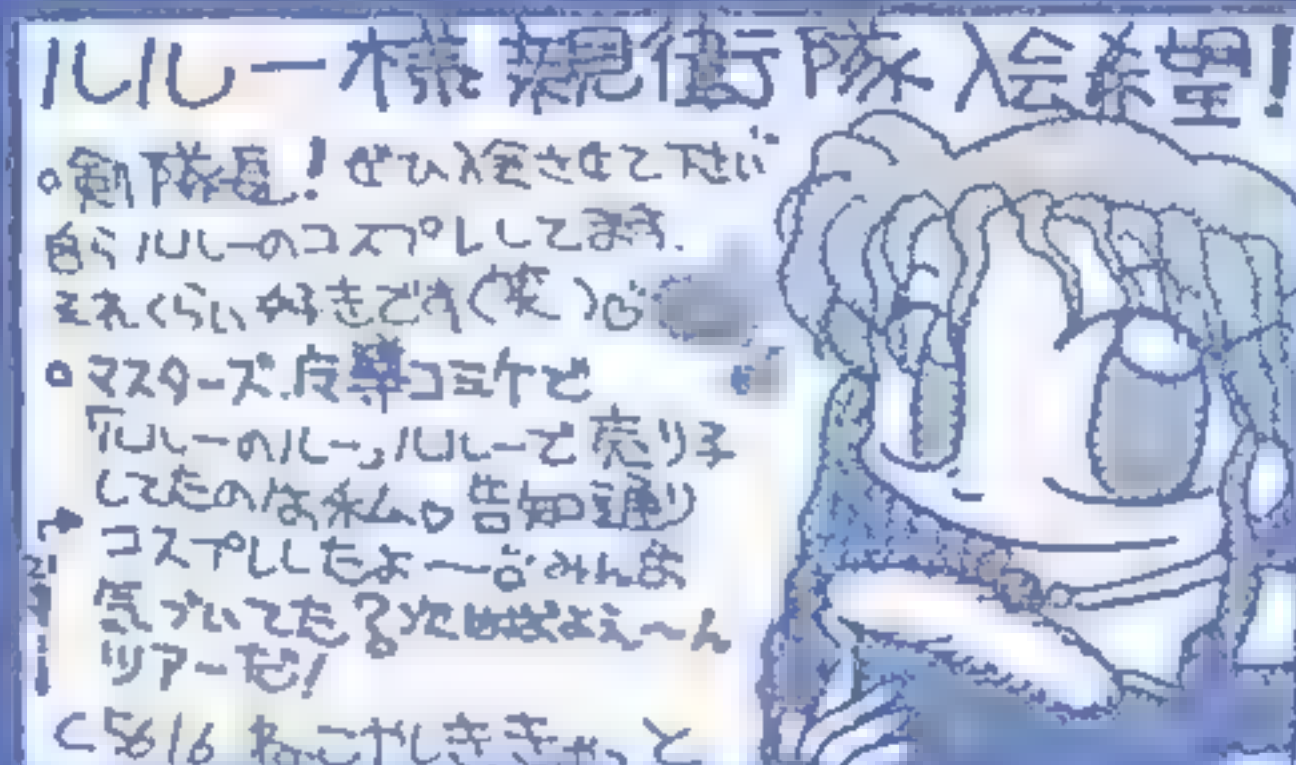 ルルー様親衛隊入会希望!
○剣隊長!ぜひ入会させて下さい
自らルルーのコスプレしてます.
それくらい好きです(笑)♡
○マスターズ.夜華コミケと
「ルルーのルー」ルルーで売り子
してたのは私ム♡告知通り
コスプレしたよ〜。みんな
気づいてた?次はぱよえ〜ん
ツアーだ!
<5616 ねこやしききゃっと